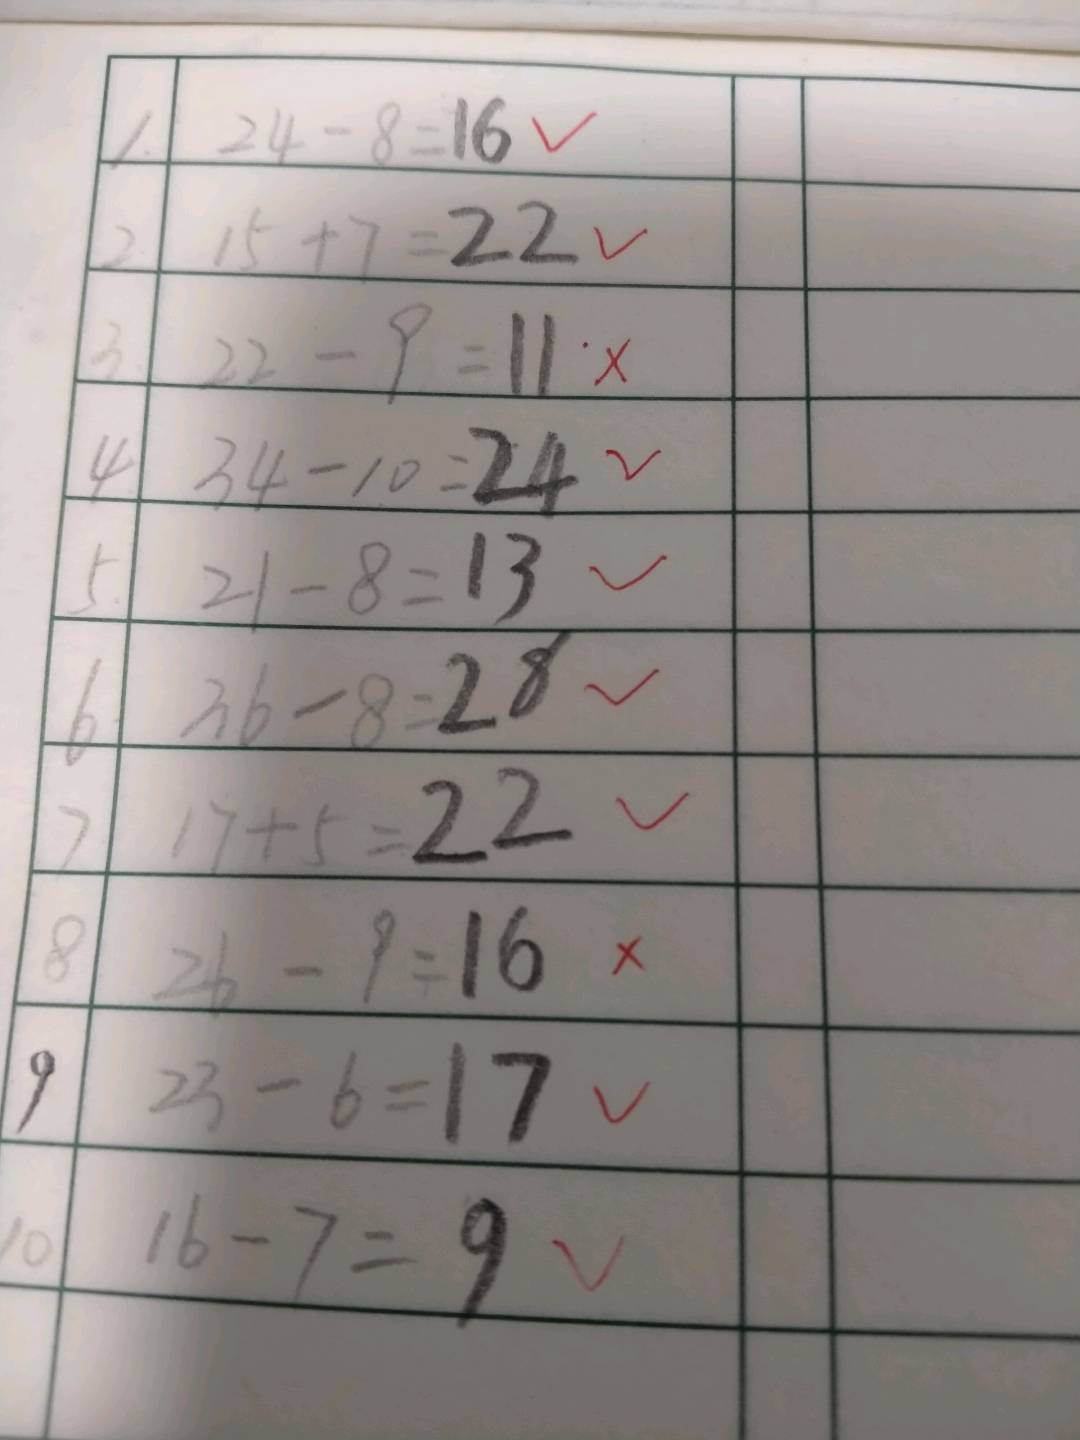 1. 24-8=16 ✓
2. 15+7=22 ✓
3. 22-9=11 ×
4. 34-10=24 ✓
5. 21-8=13 ✓
6. 36-8=28 ✓
7 17+5=22 ✓
8 26-9=16 ×
9 23-6=17 ✓
10 16-7=9 ✓